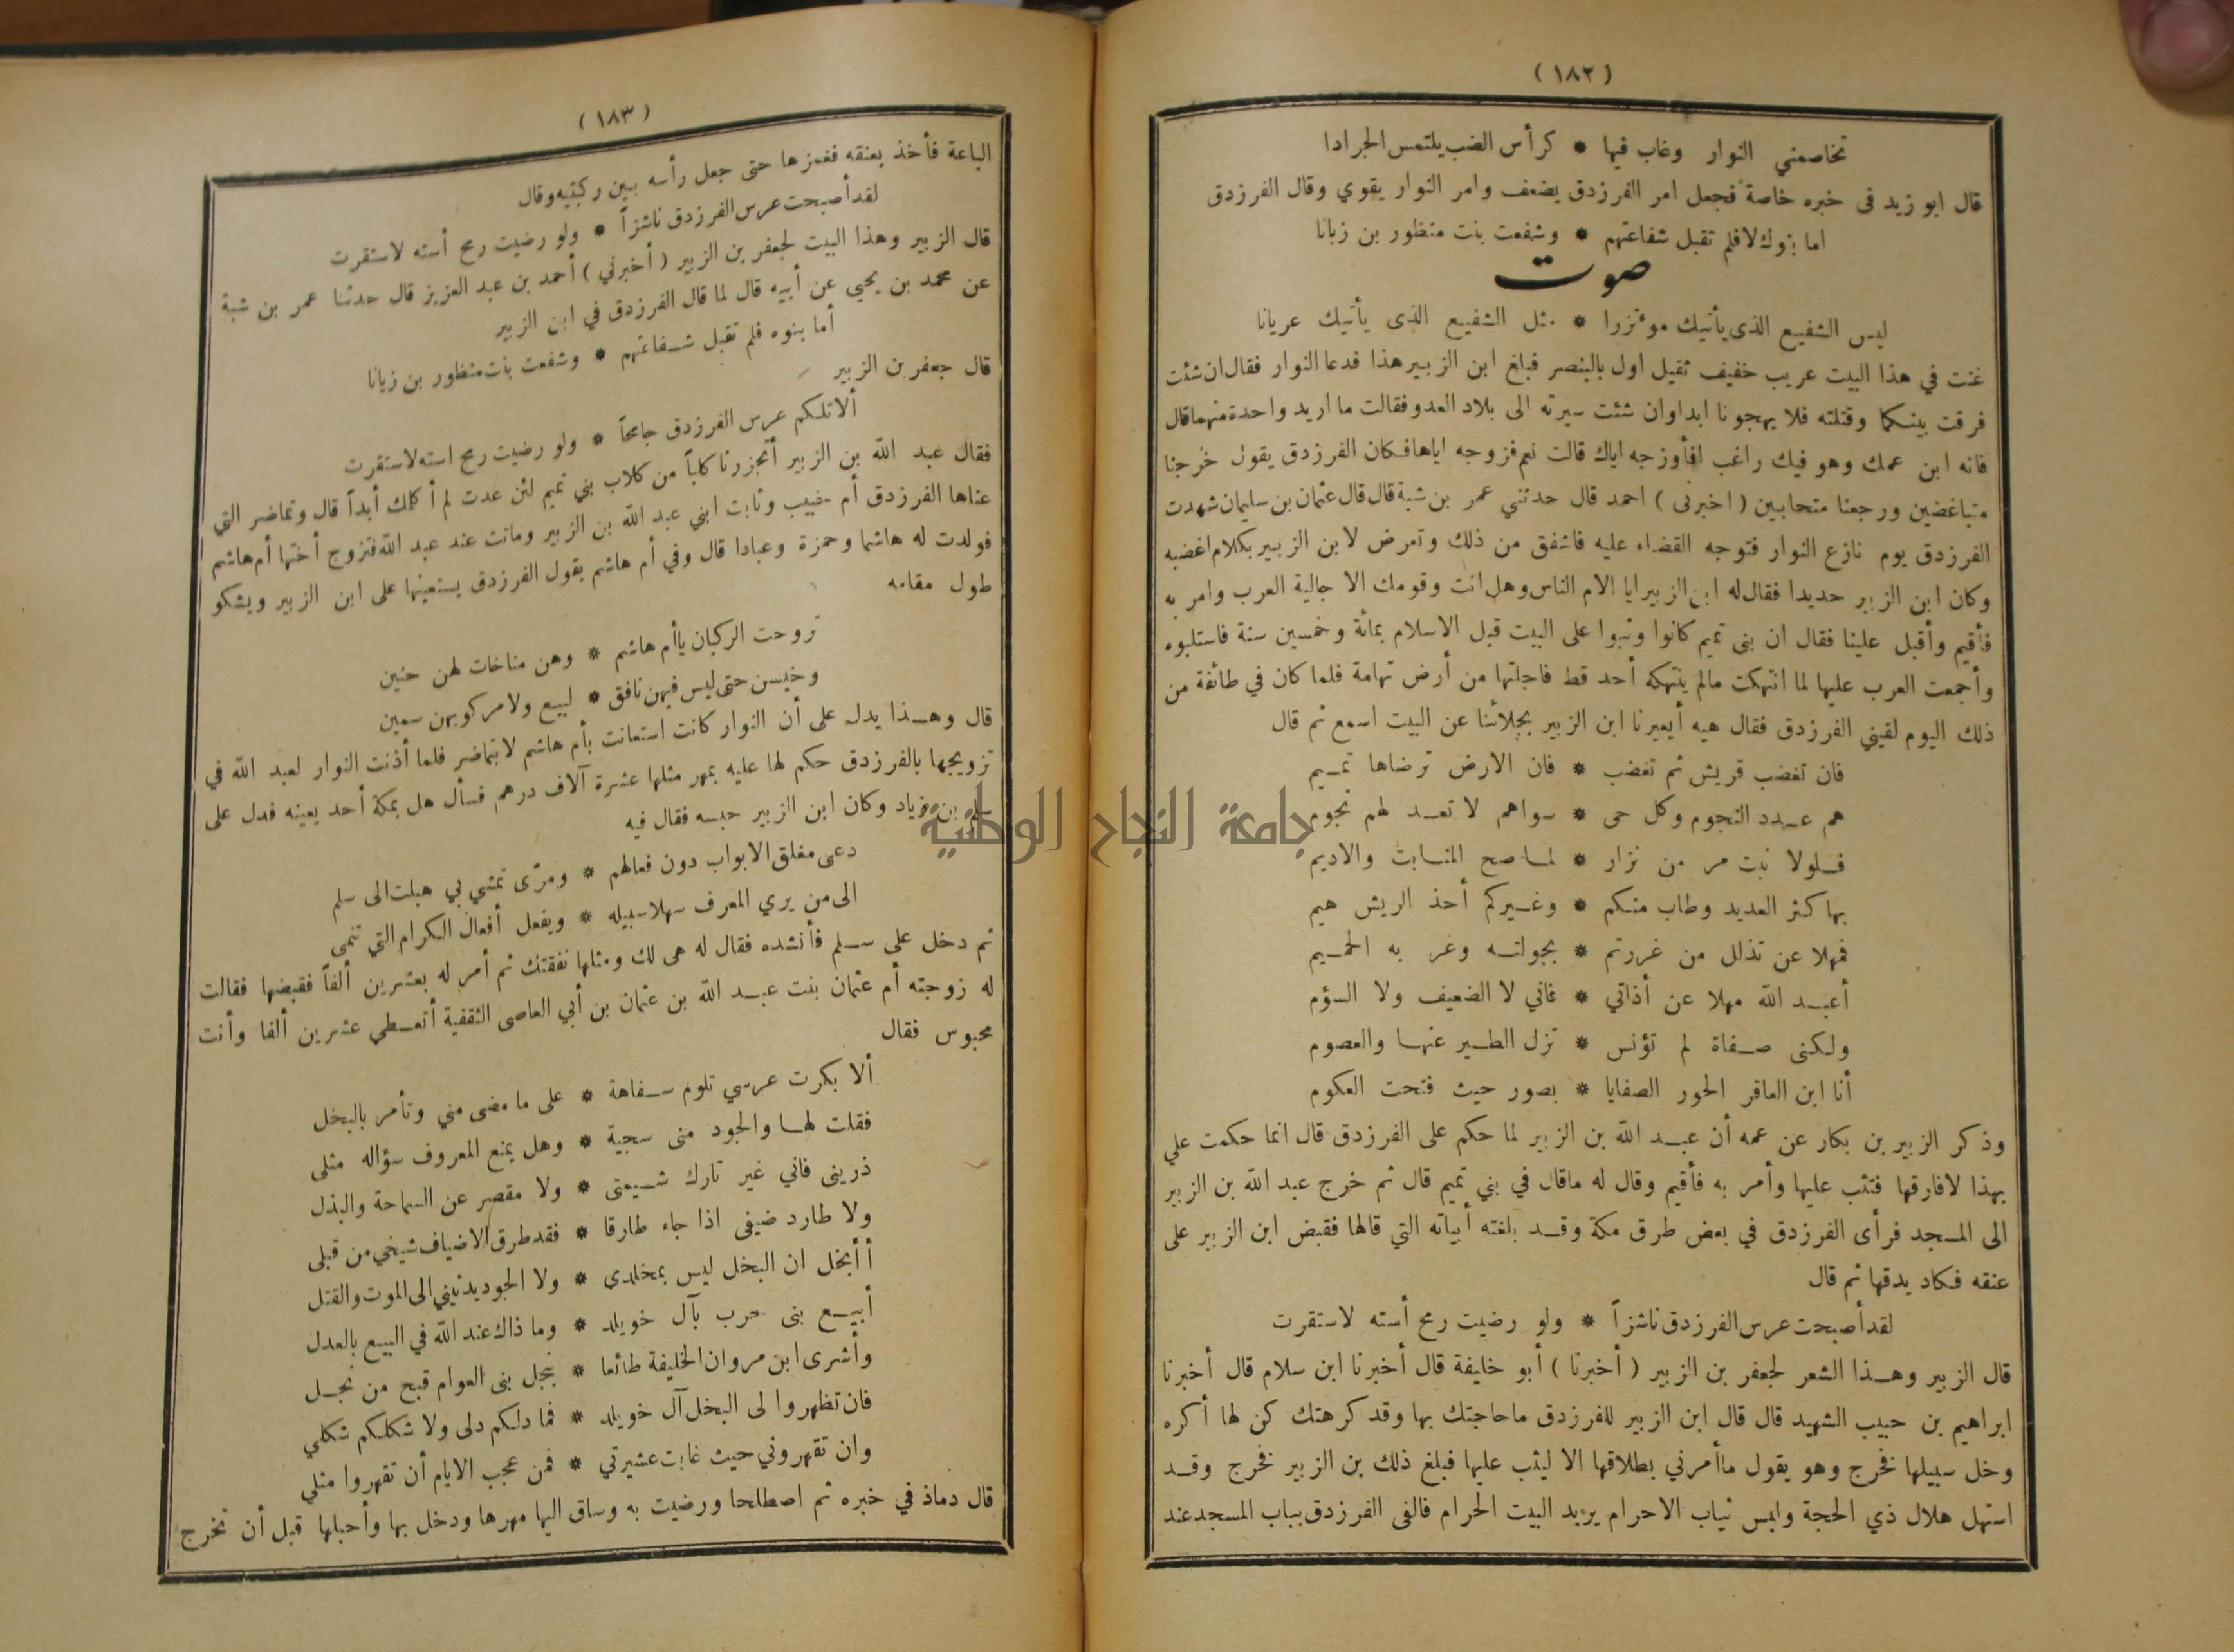 (١٨٢)
تخاصمني النوار وغاب فيها * كرأس الضب يلتمس الجرادا
قال ابو زيد فى خبره خاصة فجعل امر الفرزدق يضعف وامر النوار يقوي وقال الفرزدق
اما بنوك لافلم تقبل شفاعتهم * وشفعت بنت منظور بن زبانا
صوت
ليس الشفيع الذى يأتيك موءتزرا * مثل الشفيع الذى يأتيك عريانا
غنت في هذا البيت عريب خفيف ثقيل اول بالبنصر فبلغ ابن الزبير هذا فدعا النوار فقال ان شئت
فرقت بينكما وقتلته فلا يهجونا ابدا وان شئت سيرته الى بلاد العدو فقالت ما اريد واحدة منهما قال
فانه ابن عمك وهو فيك راغب افأوزجه اياك قالت نعم فزوجه اياها فكان الفرزدق يقول خرجنا
متباغضين ورجعنا متحابين (اخبرنى) احمد قال حدثني عمر بن شبة قال قال عثمان بن سليمان شهدت
الفرزدق يوم نازع النوار فتوجه القضاء عليه فاشفق من ذلك وتعرض لابن الزبير بكلام اغضبه
وكان ابن الزبير حديدا فقال له ابن الزبير ايا الام الناس وهل انت وقومك الا جالية العرب وامر به
فأقيم وأقبل علينا فقال ان بنى تميم كانوا وثبوا على البيت قبل الاسلام بمائة وخمسين سنة فاستلبوه
وأجمعت العرب عليها لما انتهكت مالم ينتهكه أحد قط فاجلتها من أرض تهامة فلما كان في طائفة من
ذلك اليوم لقيني الفرزدق فقال هيه أيعيرنا ابن الزبير بجلائنا عن البيت اسمع ثم قال
فان تغضب قريش ثم تغضب * فان الارض ترضاها تميم
هم عدد النجوم وكل حى * سواهم لا تعد لهم نجوم
فلولا نبت مر من نزار * لما صح المنابت والاديم
بها كثر العديد وطاب منكم * وغيركم أحذ الريش هيم
فمهلا عن تذلل من غررتم * بجولته وغر به الحميم
أعبد الله مهلا عن أذاتي * فاني لا الضعيف ولا السؤم
ولكنى صفاة لم تؤنس * تزل الطير عنها والعصوم
أنا ابن العاقر الخور الصفايا * بصور حيث فتحت العكوم
وذكر الزبير بن بكار عن عمه أن عبد الله بن الزبير لما حكم على الفرزدق قال انما حكمت علي
بهذا لافارقها فتثب عليها وأمر به فأقيم وقال له ماقال في بني تميم قال ثم خرج عبد الله بن الزبير
الى المسجد فرأى الفرزدق في بعض طرق مكة وقد بلغته أبياته التي قالها فقبض ابن الزبير على
عنقه فكاد يدقها ثم قال
لقد أصبحت عرس الفرزدق ناشزاً * ولو رضيت رمح أسته لاستقرت
قال الزبير وهذا الشعر لجعفر بن الزبير (أخبرنا) أبو خليفة قال أخبرنا ابن سلام قال أخبرنا
ابراهيم بن حبيب الشهيد قال قال ابن الزبير للفرزدق ماحاجتك بها وقد كرهتك كن لها أكره
وخل سبيلها فخرج وهو يقول ماأمرني بطلاقها الا ليثب عليها فبلغ ذلك بن الزبير فخرج وقد
استهل هلال ذي الحجة ولبس ثياب الاحرام يريد البيت الحرام فالفى الفرزدق بباب المسجد عند
(١٨٣)
الباعة فأخذ بعنقه فغمزها حتى جعل رأسه بين ركبتيه وقال
لقد أصبحت عرس الفرزدق ناشزاً * ولو رضيت رمح أسته لاستقرت
قال الزبير وهذا البيت لجعفر بن الزبير (أخبرني) أحمد بن عبد العزيز قال حدثنا عمر بن شبة
عن محمد بن يحيى عن أبيه قال لما قال الفرزدق في ابن الزبير
أما بنوه فلم تقبل شفاعتهم * وشفعت بنت منظور بن زبانا
قال جعفر بن الزبير
ألا تلكم عرس الفرزدق جامحاً * ولو رضيت رمح استه لاستقرت
فقال عبد الله بن الزبير أتجزرنا كلباً من كلاب بني تميم لئن عدت لم أكلمك أبداً قال وتماضر التي
عناها الفرزدق أم خبيب وثابت ابني عبد الله بن الزبير وماتت عند عبد الله فتزوج أختها أم هاشم
فولدت له هاشما وحمزة وعبادا قال وفي أم هاشم يقول الفرزدق يستعينها على ابن الزبير ويشكو
طول مقامه
تروحت الركبان ياأم هاشم * وهن مناخات لهن حنين
وخيسن حتى ليس فيهن نافق * لبيع ولا مركوبهن سمين
قال وهذا يدل على أن النوار كانت استعانت بأم هاشم لا بتماضر فلما أذنت النوار لعبد الله في
تزويجها بالفرزدق حكم لها عليه بمهر مثلها عشرة آلاف درهم فسأل هل بمكة أحد يعينه فدل على
سلم بن زياد وكان ابن الزبير حبسه فقال فيه
دعى مغلق الابواب دون فعالهم * ومرّى تمشي بي هبلت الى سلم
الى من يري المعرف سهلا سبيله * ويفعل أفعال الكرام التي تنمى
ثم دخل على سلم فأنشده فقال له هى لك ومثلها نفقتك ثم أمر له بعشرين ألفاً فقبضها فقالت
له زوجته أم عثمان بنت عبد الله بن عثمان بن أبي العاصى الثقفية أتعطي عشرين ألفا وأنت
محبوس فقال
ألا بكرت عرسي تلوم سفاهة * على ما مضى مني وتأمر بالبخل
فقلت لها والجود منى سجية * وهل يمنع المعروف سؤاله مثلى
ذرينى فاني غير تارك شيمتى * ولا مقصر عن السماحة والبذل
ولا طارد ضيفى اذا جاء طارقا * فقد طرق الاضياف شيخي من قبلى
أأبخل ان البخل ليس بمخلدى * ولا الجود يدنيني الى الموت والقتل
أبيع بنى حرب بآل خويلد * وما ذاك عند الله في البيع بالعدل
وأشرى ابن مروان الخليفة طائعا * بنجل بنى العوام قبح من نجل
فان تظهروا لى البخل آل خويلد * فما دلكم دلى ولا شكلكم شكلي
وان تقهروني حيث غابت عشيرتي * فمن عجب الايام أن تقهروا مثلي
قال دماذ في خبره ثم اصطلحا ورضيت به وساق اليها مهرها ودخل بها وأحبلها قبل أن تخرج
جامعة النجاح الوطنية